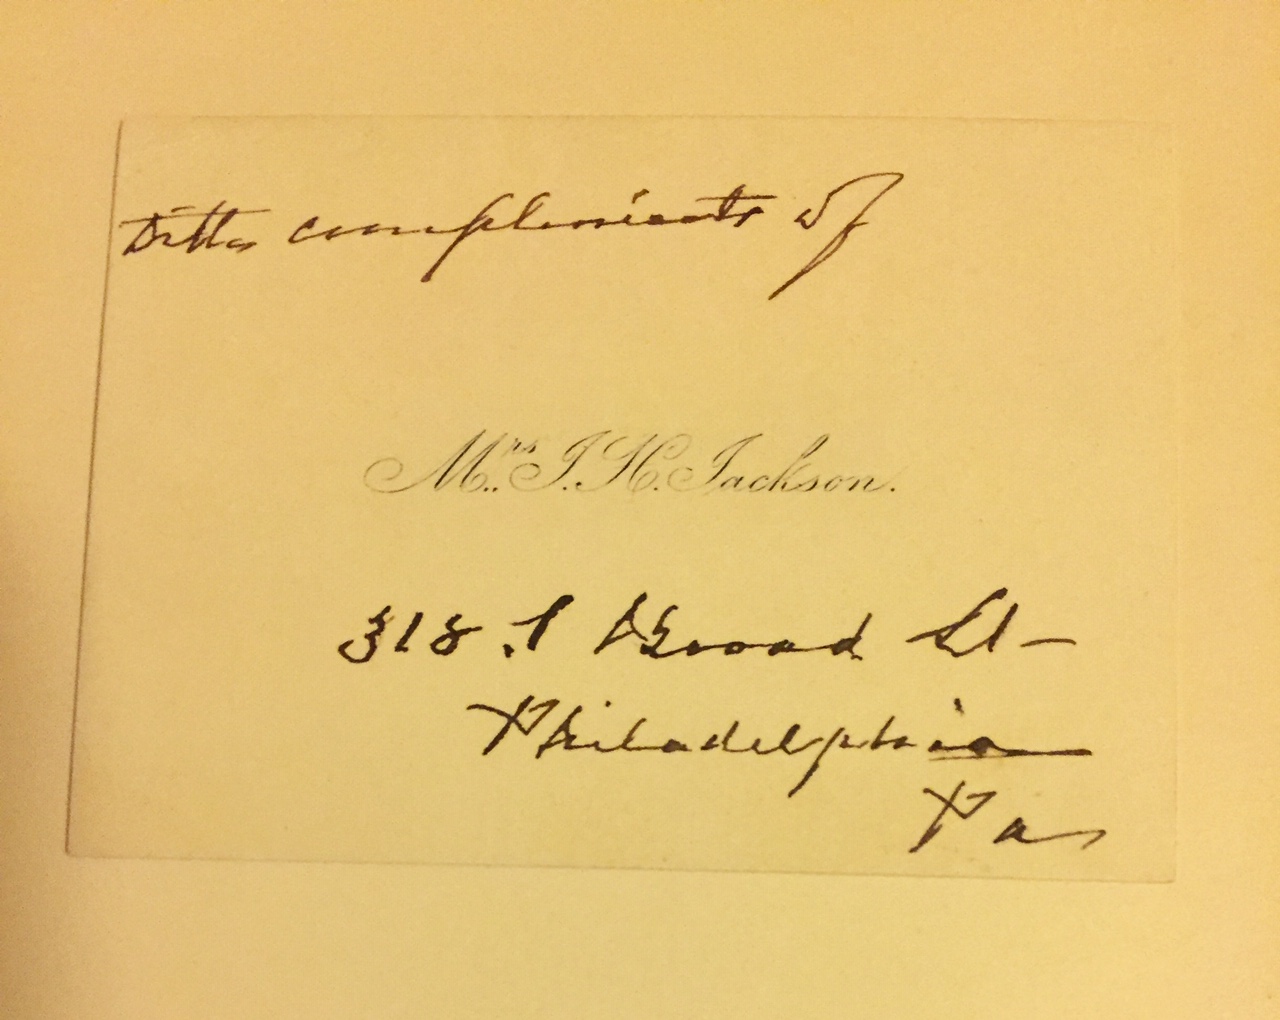 compliments of
Mrs. J. H. Jackson.
318 S Broad St-
Philadelphia
Pa